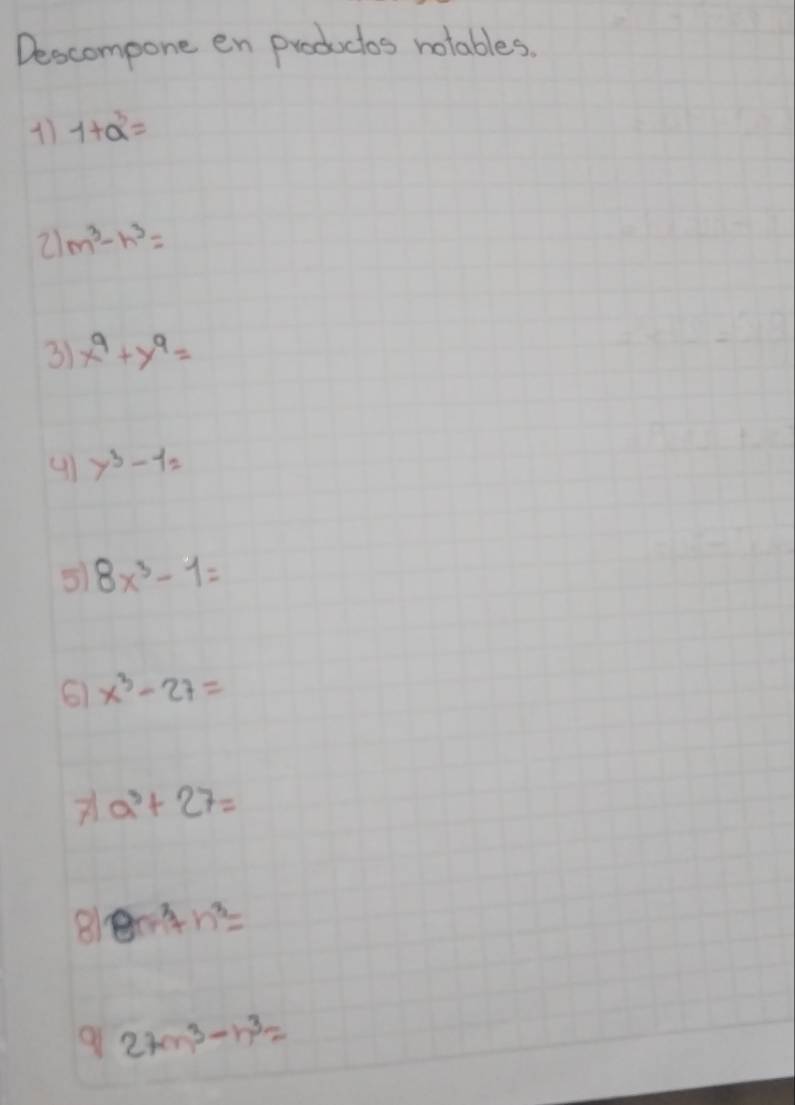 Descompone en productos notables.
1) 1+a³=
2) m³-n³=
3) x⁹+y⁹=
4) y³-1=
5) 8x³-1=
6) x³-27=
7) a³+27=
8) 8m³+n³=
9) 27m³-n³=